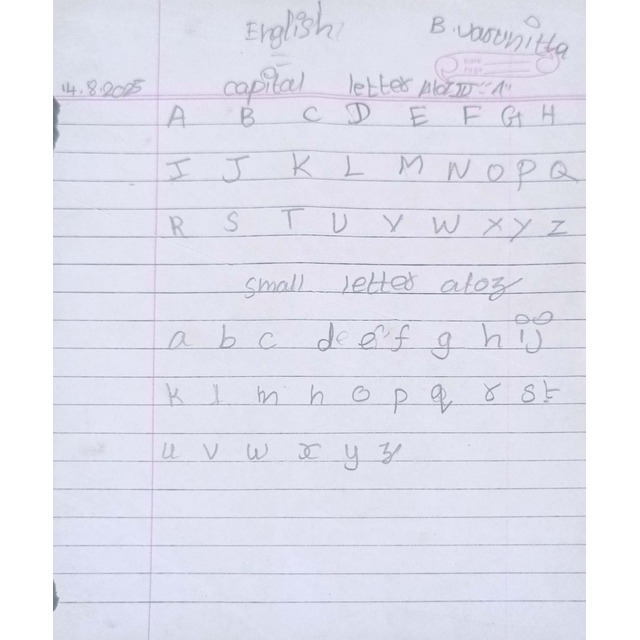 English
B. Varunitta
14.8.2025 capital letter
A B C D E F G H
I J K L M N O P Q
R S T U V W X Y Z
small letter atoz
a b c d e f g h i j
k l m n o p q r s t
u v w x y z